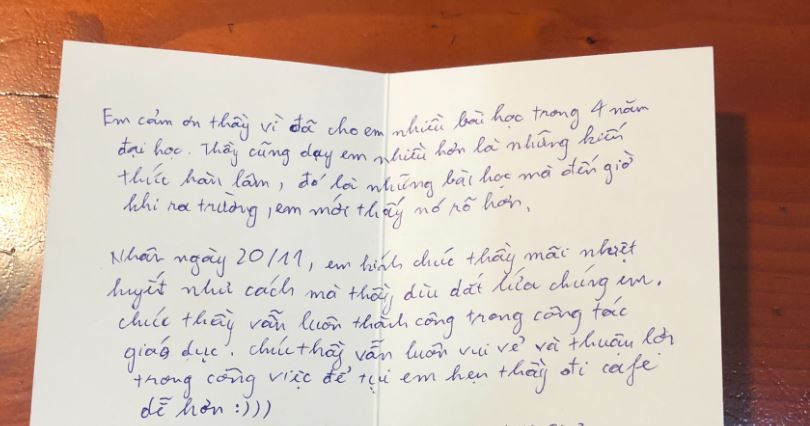 Em cảm ơn thầy vì đã cho em nhiều bài học trong 4 năm
đại học. Thầy cũng dạy em nhiều hơn là những kiến
thức hàn lâm, đó là những bài học mà đến giờ
khi ra trường, em mới thấy nó rõ hơn.
Nhân ngày 20/11, em kính chúc thầy mãi nhiệt
huyết như cách mà thầy dìu dắt lứa chúng em.
chúc thầy vẫn luôn thành công trong công tác
giáo dục. chúc thầy vẫn luôn vui vẻ và thuận lợi
trong công việc để tụi em hẹn thầy đi cafe
dễ hơn :)))